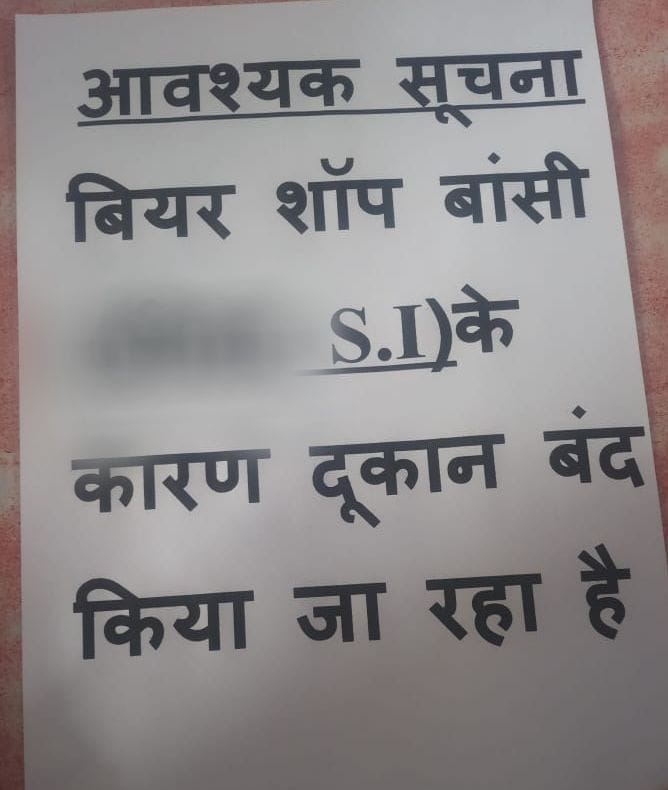 आवश्यक सूचना
बियर शॉप बांसी
S.I)के
कारण दूकान बंद
किया जा रहा है